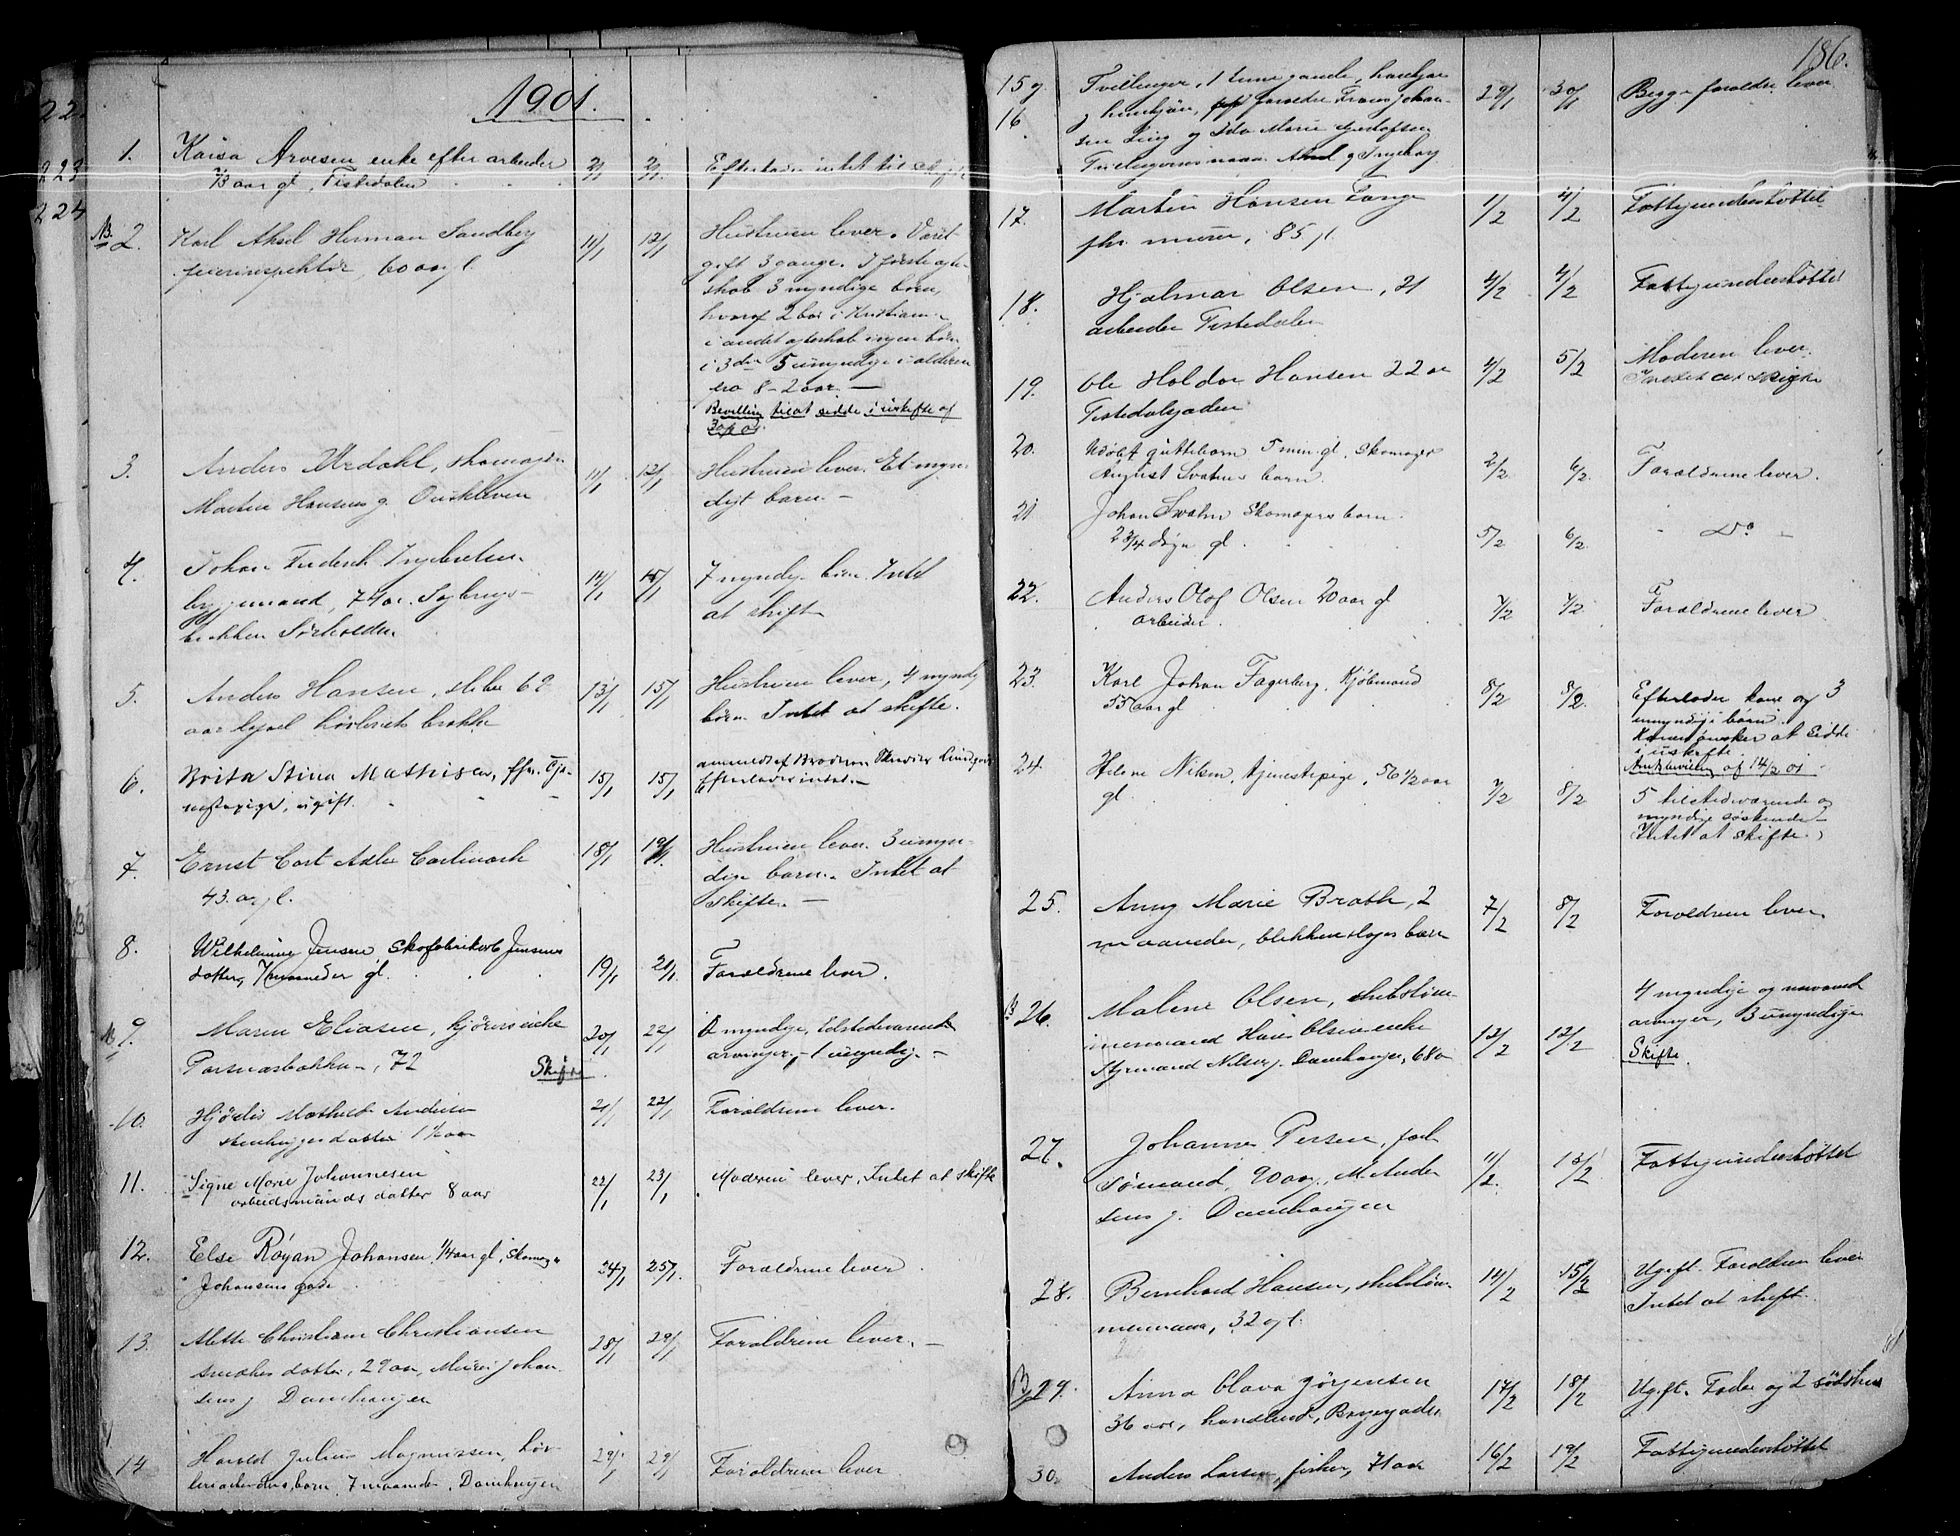 1901.
1. Kaisa Arvesen enke efter arbeider 2/1 2/1 Efterlader intet til skifte
73 aar gl, Tistedalen
NB. 2. Karl Aksel Herman Sandberg 11/1 12/1 Hustruen lever. Været
feierinspektør, 60 aar gl. gift 3 gange. I første ægte
skab 3 myndige børn,
hvoraf 2 bor i Kristiania
i andet ægteskab ingen børn
i 3die 5 umyndige i alderen
fra 8-2 aar. —
Bevilling til at sidde i uskifte af
3. Anders Ardahl, skomager 11/1 12/1 Hustruen lever. Et myn
Martin Hansens g. Ouskleven digt barn. —
4. Johan Frederik Ingebretsen 14/1 15/1 7 myndige børn. Intet
bryggemand, 74 ar. Sagbrugs- at skifte
bakken Sørhalden
5. Anders Hansen, sliber 62 13/1 15/1 Hustruen lever, 4 myndig
aar børn. Intet at skifte.
6. Brita Stina Mathisen, fhv. Tje- 15/1 15/1 anmeldt af Broderen
nestepige, ugift. Efterlades intet. —
7. Ernst Cort Adler Carlmark 18/1 19/1 Hustruen lever. 3 umyn-
43. ar gl. dige børn. Intet at
skifte. —
8. Wilhelmine Jensen, Skofabrikarb Jensens
datter, 7 maaneder gl. 19/1 21/1 Forældrene lever.
NB 9. Maren Eliasen, kjørers enke 20/1 22/1 2 myndige, tilstedeværende
72 Skifte arvinger, - 1 umyndig. —
10. Hjørdis Mathilde Andersen 21/1 22/1 Forældrene lever.
stenhuggers datter 1 1/2 aar
11. Signe Marie Johannesen 22/1 23/1 Moderen lever, Intet at skifte
arbeidsmands datter 8 aar
12. Else Røyan Johansen, 1/4 aar gl, Skomag. 24/1 25/1 Forældrene lever.
Johansens gade
13. Alette Christiane Christiansen 28/1 29/1 Forældrene lever. —
snedkers datter, 29 aar, Murer Johan-
sens g Damhaugen
14 Harald Julius Magnussen, 29/1 29/1 Forældrene lever
barn 7 maaneder, Damhaugen
186.
15 og Tvillinger, 1 time gamle, hankjøn 29/1 30/1 Begge forældre lever
16 og hunkjøn, forældre Frans Johan-
sen Ling og Ida Marie Gustafsen
Tvillingernes navn Aksel og Ingeborg
17. Martin Hansen Tange 1/2 4/2 Fattigunderstøttet
fhv. murer, 85 gl.
18. Hjalmar Olsen, 21 4/2 4/2 Fattigunderstøttet
arbeider Tistedalen
19. Ole Haldor Hansen 22 ar 4/2 5/2 Moderen lever.
Tistedalsgaden Intet at skifte
20. Adolf guttebarn 5 min. gl. Skomager 2/2 6/2 Forældrene lever.
August Svahns barn.
21 Johan Svahn Skomagers barn. 5/2 6/2 - Do -
2 3/4 døgn gl.
22. Anders Olof Olsen 20 aar gl 7/2 7/2 Forældrene lever
arbeider.
23. Karl Johan Fagerberg, Kjøbmand 8/2 8/2. Efterlader kone og 3
55 aar gl umyndige børn.
Konen ønsker at sidde
i uskifte
Amtsbevilling af 14/2 01
24. Helene Nilsen, tjenestepige, 56 1/2 aar 7/2 8/2 5 tilstedeværende og
gl myndige søskende -
Intet at skifte.
25. Anny Marie Braath, 2 7/2 8/2 Forældrene lever
maaneder, blikkenslagers barn
NB 26. Malene Olsen, skibstøm- 12/2 12/2 4 myndige og nærværende
mermand Hans Olsens enke arvinger, 3 umyndige
Styrmand Nilsens g. Damhaugen, 68 ar Skifte.
27. Johannes Persen, forh. 11/2. 13/2 Fattigunderstøttet
Sømand, 90 aar, M. Ander
sens g. Damhaugen
28. Bernhard Hansen, skibstøm- 14/2 15/2 Ugift. Forældrene lever
mermand, 32 ar gl. Intet at skifte.
NB 29. Anna Olava Jørgensen 17/2 18/2 Ugift. Fader og 2 sødskende
36 aar, handlende, Borgergaden
30. Anders Larsen, fisker, 71 aar 16/2 19/2 Fattigunderstøttet
22.
223
224